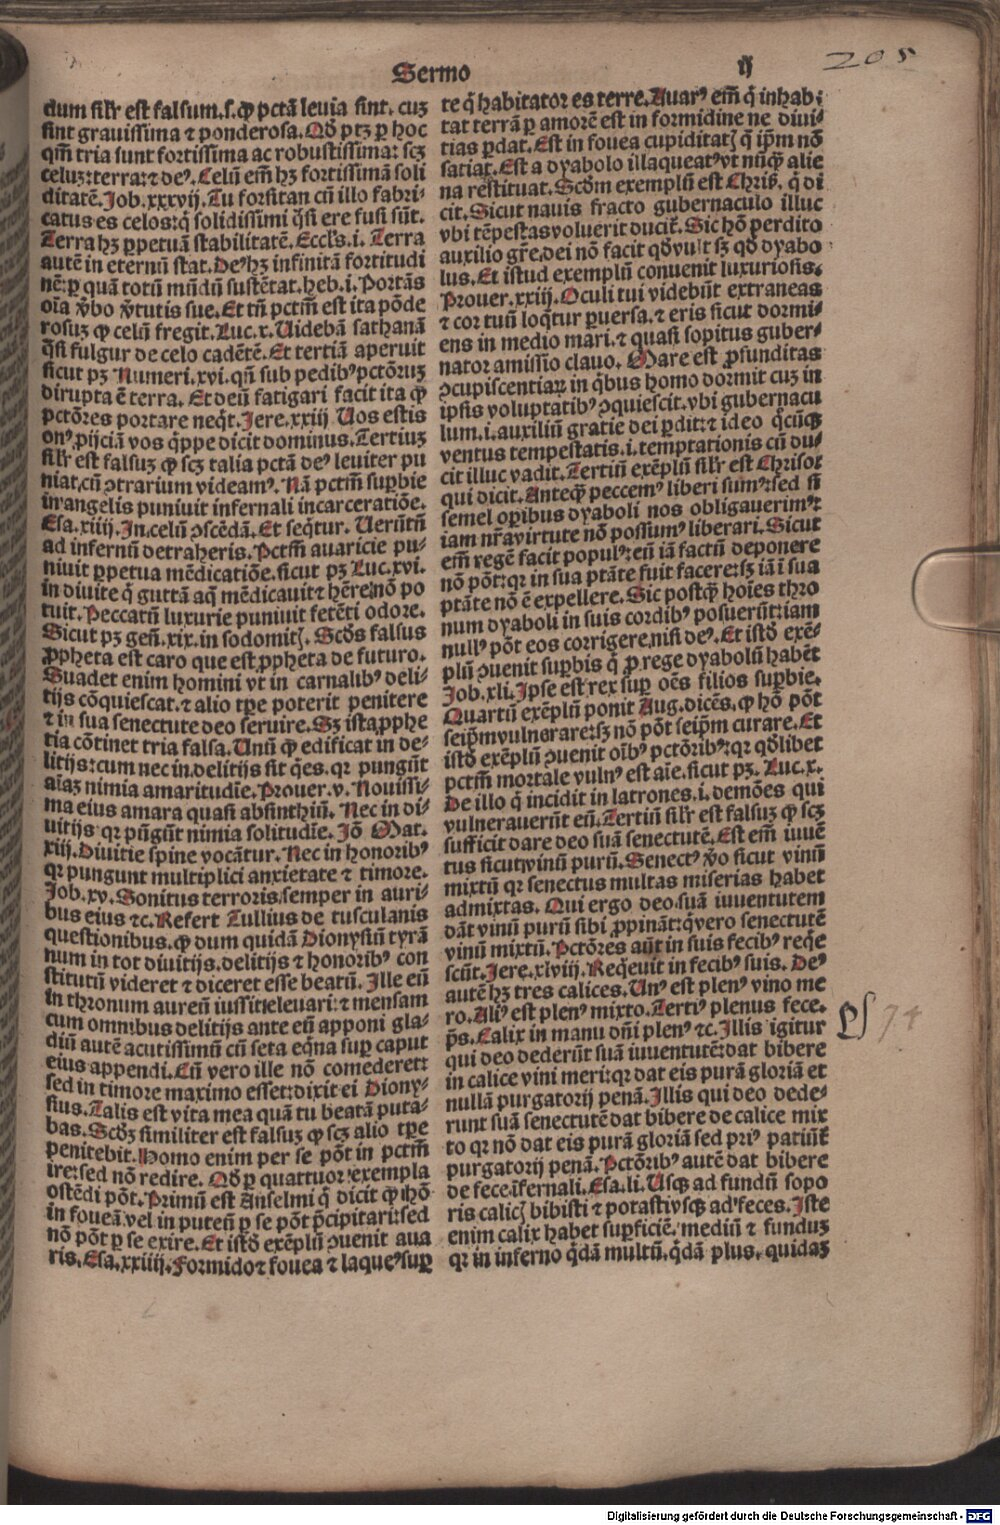 Sermo ij
205
dum silr est falsum.s.ꝙ pctā leuia sint. cuȝ
sint grauissima ⁊ ponderosa. Qď ptȝ ꝑ hoc
qm̄ tria sunt fortissima ac robustissima: scȝ
celuȝ: terra: ⁊ deꝰ. Celū em̄ hȝ fortissimā soli
ditatē. Job.xxxvij. Tu forsitan cū illo fabri⸗
catus es celos: q̇ solidissimi q̄si ere fusi sūt.
Terra hȝ ꝑpetuā stabilitatē. Eccls.i. Terra
autē in eternū stat. Deꝰ hȝ infinitā fortitudi
nē: ꝑ quā totū mūdū sustētat. heb.i. Portās
oīa v̄bo v̄tutis sue. Et tn̄ pctm̄ est ita pōde
rosuȝ ꝙ celū fregit. Luc.x. Uidebā sathanā
q̄si fulgur de celo cadētē. Et tertiā aperuit
sicut pȝ Numeri.xvi. qn̄ sub pedibꝰ pctōruȝ
dirupta ē terra. Et deū fatigari facit ita ꝙ
pctōres portare neq̇t. Jere.xxiij Uos estis
onꝰ, ꝓijciā vos q̇ppe dicit dominus. Tertiuȝ
silr est falsuȝ ꝙ scȝ talia pctā deꝰ leuiter pu
niat, cū ꝯtrarium videamꝰ. Nā pctm̄ suꝑbie
in angelis puniuit infernali incarceratiōe.
Esa.xiiij. In celū ꝯscēdā. Et seq̇tur. Uerūtn̄
ad infernū detraheris. Pctm̄ auaricie pu⸗
niuit ꝑpetua mēdicatiōe. sicut pȝ Luc.xvi.
in diuite q̇ guttā aq̄ mēdicauit ⁊ hēre nō po
tuit. Peccatū luxurie puniuit fetēti odore.
Sicut pȝ gen̄.xix. in sodomitꝭ. Scďs falsus
ꝓpheta est caro que est ꝓpheta de futuro.
Suadet enim homini vt in carnalibꝰ deli⸗
tijs cōquiescat. ⁊ alio tꝑe poterit penitere
⁊ in sua senectute deo seruire. Sȝ ista ꝓphe
tia cōtinet tria falsa. Unū ꝙ edificat in de⸗
litijs: cum nec in delitijs sit q̇es. qꝛ pungūt
aīaȝ nimia amaritudīe. Prouer.v. Nouissi⸗
ma eius amara quasi absinthiū. Nec in di⸗
uitijs qꝛ pūgūt nimia solitudīe. Jō Mat.
xiij. Diuitie spine vocātur. Nec in honoribꝰ
qꝛ pungunt multiplici anxietate ⁊ timore.
Job.xv. Sonitus terroris semper in auri⸗
bus eius ⁊c. Refert Tullius de tusculanis
questionibus. ꝙ dum quidā Dionysiū tyrā
num in tot diuitijs. delitijs ⁊ honoribꝰ con
stitutū videret ⁊ diceret esse beatū. Ille eū
in thronum aureū iussit eleuari: ⁊ mensam
cum omnibus delitijs ante eū apponi gla⸗
diū autē acutissimū cū seta eq̇na suꝑ caput
eius appendi. Cū vero ille nō comederet:
sed in timore maximo esset: dixit ei Diony⸗
sius. Talis est vita mea quā tu beatā puta⸗
bas. Scďȝ similiter est falsuȝ ꝙ scȝ alio tꝑe
penitebit. Homo enim per se pōt in pctm̄
ire: sed nō redire. Qď ꝑ quattuor exempla
ostēdi pōt. Primū est Anselmi q̇ dicit ꝙ hō
in foueā vel in puteū ꝑ se pōt p̄cipitari: sed
nō pōt ꝑ se exire. Et istď exēplū ꝯuenit aua
ris. Esa.xxiiij. Formido ⁊ fouea ⁊ laqueꝰ suꝑ
te q̇ habitator es terre. Auarꝰ em̄ q̇ inhabi⸗
tat terrā ꝑ amorē est in formidine ne diui⸗
tias ꝑdat. Est in fouea cupiditatꝭ q̇ ip̄m nō
satiat. Est a dyabolo illaqueatꝰ vt nūq̄ alie
na restituat. Scďm exemplū est Chris. q̇ di
cit. Sicut nauis fracto gubernaculo illuc
vbi tēpestas voluerit ducit. Sic hō perdito
auxilio gr̄e dei nō facit qď vult sȝ qď dyabo
lus. Et istud exemplū conuenit luxuriosis.
Prouer.xxiij. Oculi tui videbūt extraneas
⁊ cor tuū loq̄tur ꝑuersa. ⁊ eris sicut dormi⸗
ens in medio mari. ⁊ quasi sopitus guber⸗
nator amissio clauo. Mare est ꝓfunditas
ꝯcupiscentiaꝝ in q̇bus homo dormit cuȝ in
ipsis voluptatibꝰ ꝯquiescit. vbi gubernacu
lum.i. auxiliū gratie dei ꝑdit: ⁊ ideo q̇cūqȝ
ventus tempestatis.i. temptationis cū du⸗
cit illuc vadit. Tertiū exēplū silr est Chrisos
qui dicit. Anteq̄ peccemꝰ liberi sumꝰ: sed si
semel oꝑibus dyaboli nos obligauerimꝰ:
iam nr̄a virtute nō possumꝰ liberari. Sicut
em̄ regē facit populꝰ: eū iā factū deponere
nō pōt: qꝛ in sua ptāte fuit facere: sȝ iā ī sua
ptāte nō ē expellere. Sic postq̄ hoīes thro
num dyaboli in suis cordibꝰ posuerūt: iam
nullꝰ pōt eos corrigere, nisi deꝰ. Et istď exē⸗
plū ꝯuenit suꝑbis q̇ ꝓ rege dyabolū habēt
Job.xli. Ipse est rex suꝑ oēs filios suꝑbie.
Quartū exēplū ponit Aug. dicēs. ꝙ hō pōt
seip̄m vulnerare: sȝ nō pōt seip̄m curare. Et
istď exēplū ꝯuenit oībꝰ pctōribꝰ: qꝛ qďlibet
pctm̄ mortale vulnꝰ est aīe. sicut pȝ. Luc.x.
De illo q̇ incidit in latrones.i. demōes qui
vulnerauerūt eū. Tertiū silr est falsuȝ ꝙ scȝ
sufficit dare deo suā senectutē. Est em̄ iuuē
tus sicut vinū purū. Senectꝰ v̄o sicut vinū
mixtū qꝛ senectus multas miserias habet
admixtas. Qui ergo deo suā iuuentutem
dāt vinū purū sibi ꝓpināt: q̇ vero senectutē
vinū mixtū. Pctōres aūt in suis fecibꝰ reqe
scūt. Jere.xlviij. Req̇euit in fecibꝰ suis. Deꝰ
autē hȝ tres calices. Unꝰ est plenꝰ vino me
ro. Aliꝰ est plenꝰ mixto. Tertiꝰ plenus fece.
p̄s. Calix in manu dn̄i plenꝰ ⁊c. Illis igitur
qui deo dederūt suā iuuentutē: dat bibere
in calice vini meri: qꝛ dat eis purā gloriā et
nullā purgatorij penā. Illis qui deo dede⸗
runt suā senectutē dat bibere de calice mix
to qꝛ nō dat eis purā gloriā sed priꝰ patiūt
purgatorij penā. Pctōribꝰ autē dat bibere
de fece īfernali. Esa.li. Usqȝ ad fundū sopo
ris calicꝭ bibisti ⁊ potasti vsqȝ ad feces. Iste
enim calix habet suꝑficiē. mediū ⁊ funduȝ
qꝛ in inferno q̇dā multū. q̇dā plus. quidaȝ
Ps 74
Digitalisierung gefördert durch die Deutsche Forschungsgemeinschaft - DFG